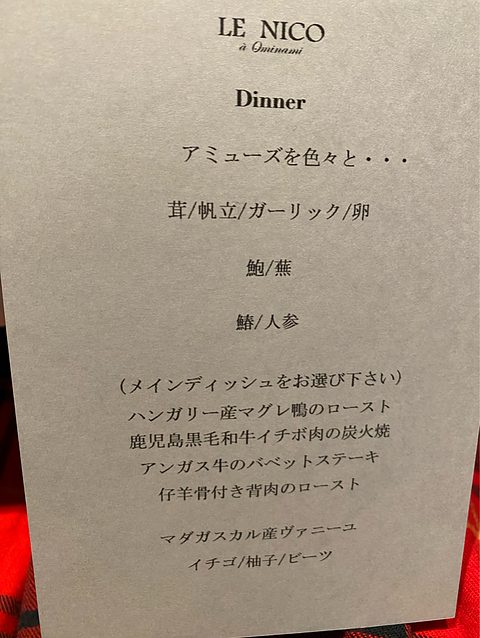 LE NICO
à Ominami
Dinner
アミューズを色々と・・・
茸/帆立/ガーリック/卵
鮑/蕪
鰆/人参
(メインディッシュをお選び下さい)
ハンガリー産マグレ鴨のロースト
鹿児島黒毛和牛イチボ肉の炭火焼
アンガス牛のバベットステーキ
仔羊骨付き背肉のロースト
マダガスカル産ヴァニーユ
イチゴ/柚子/ビーツ